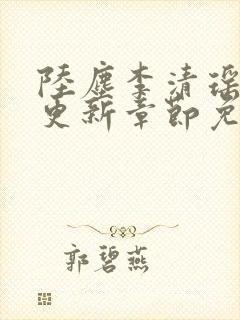 陸塵李清瑤
更新章節免
郭碧燕